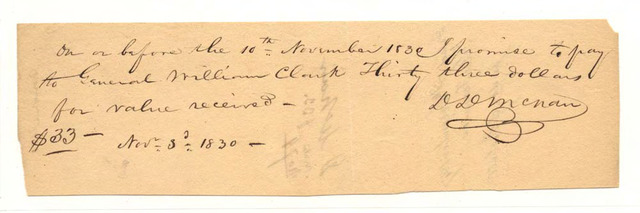 On or before the 10th November 1830 I promise to pay
to General William Clark Thirty three dollars
for value received – D D McNair
$33 – Novr 3d 1830 –